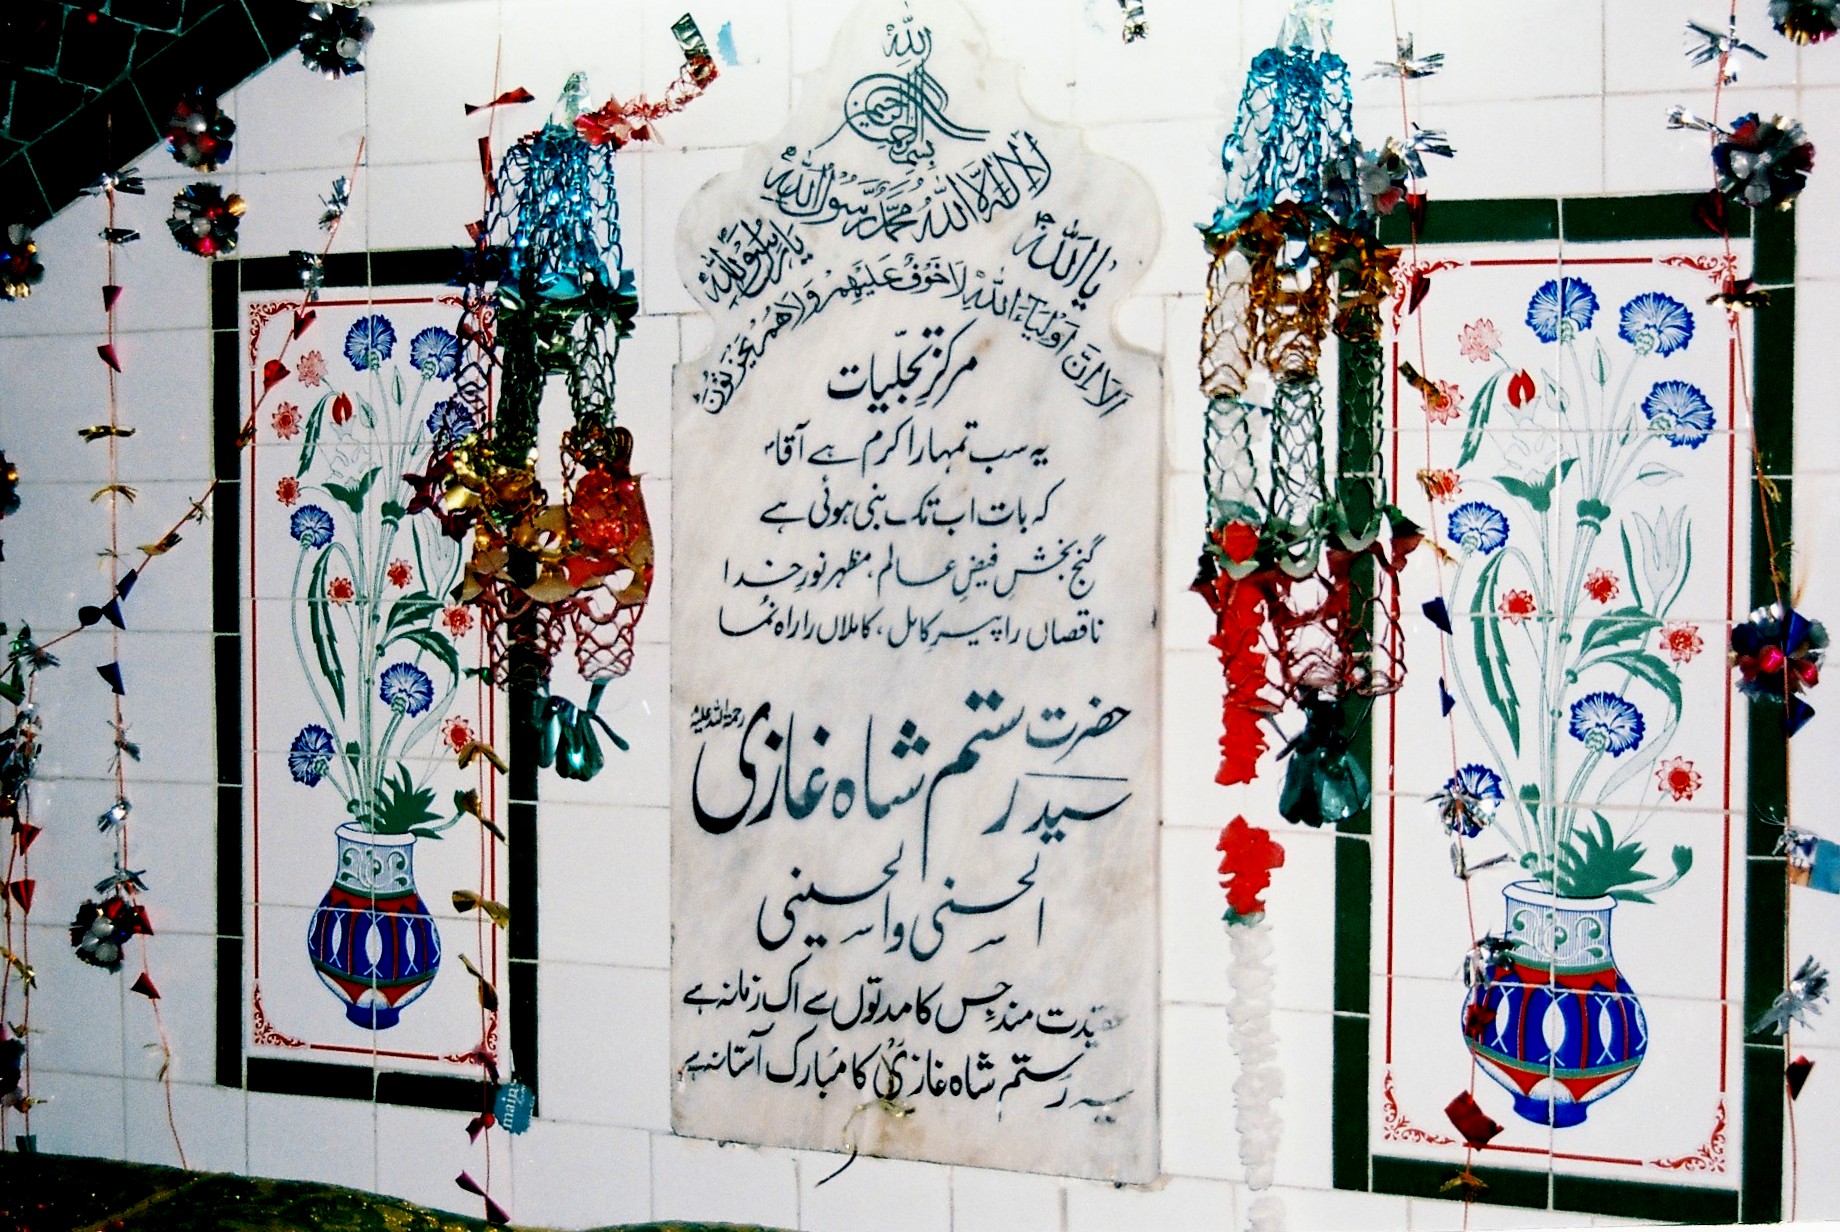 اللہ
بسم اللہ الرحمن الرحیم
لا الہ الا اللہ محمد رسول اللہ
یا اللہ
یا رسول اللہ
الا ان اولیاء اللہ لا خوف علیھم ولا ھم یحزنون
مرکز تجلّیات
یہ سب تمہارا کرم ہے آقا
کہ بات اب تک بنی ہوئی ہے
گنج بخش فیضِ عالم، مظہر نورِ خدا
ناقصاں را پیرِ کامل، کاملاں را راہ نُما
حضرت سید رستم شاہ غازی رحمۃ اللہ علیہ
الحسنی والحسینی
عقیدت مند جس کا مدتوں سے اک زمانہ ہے
یہ رستم شاہ غازیؒ کا مبارک آستانہ ہے
main